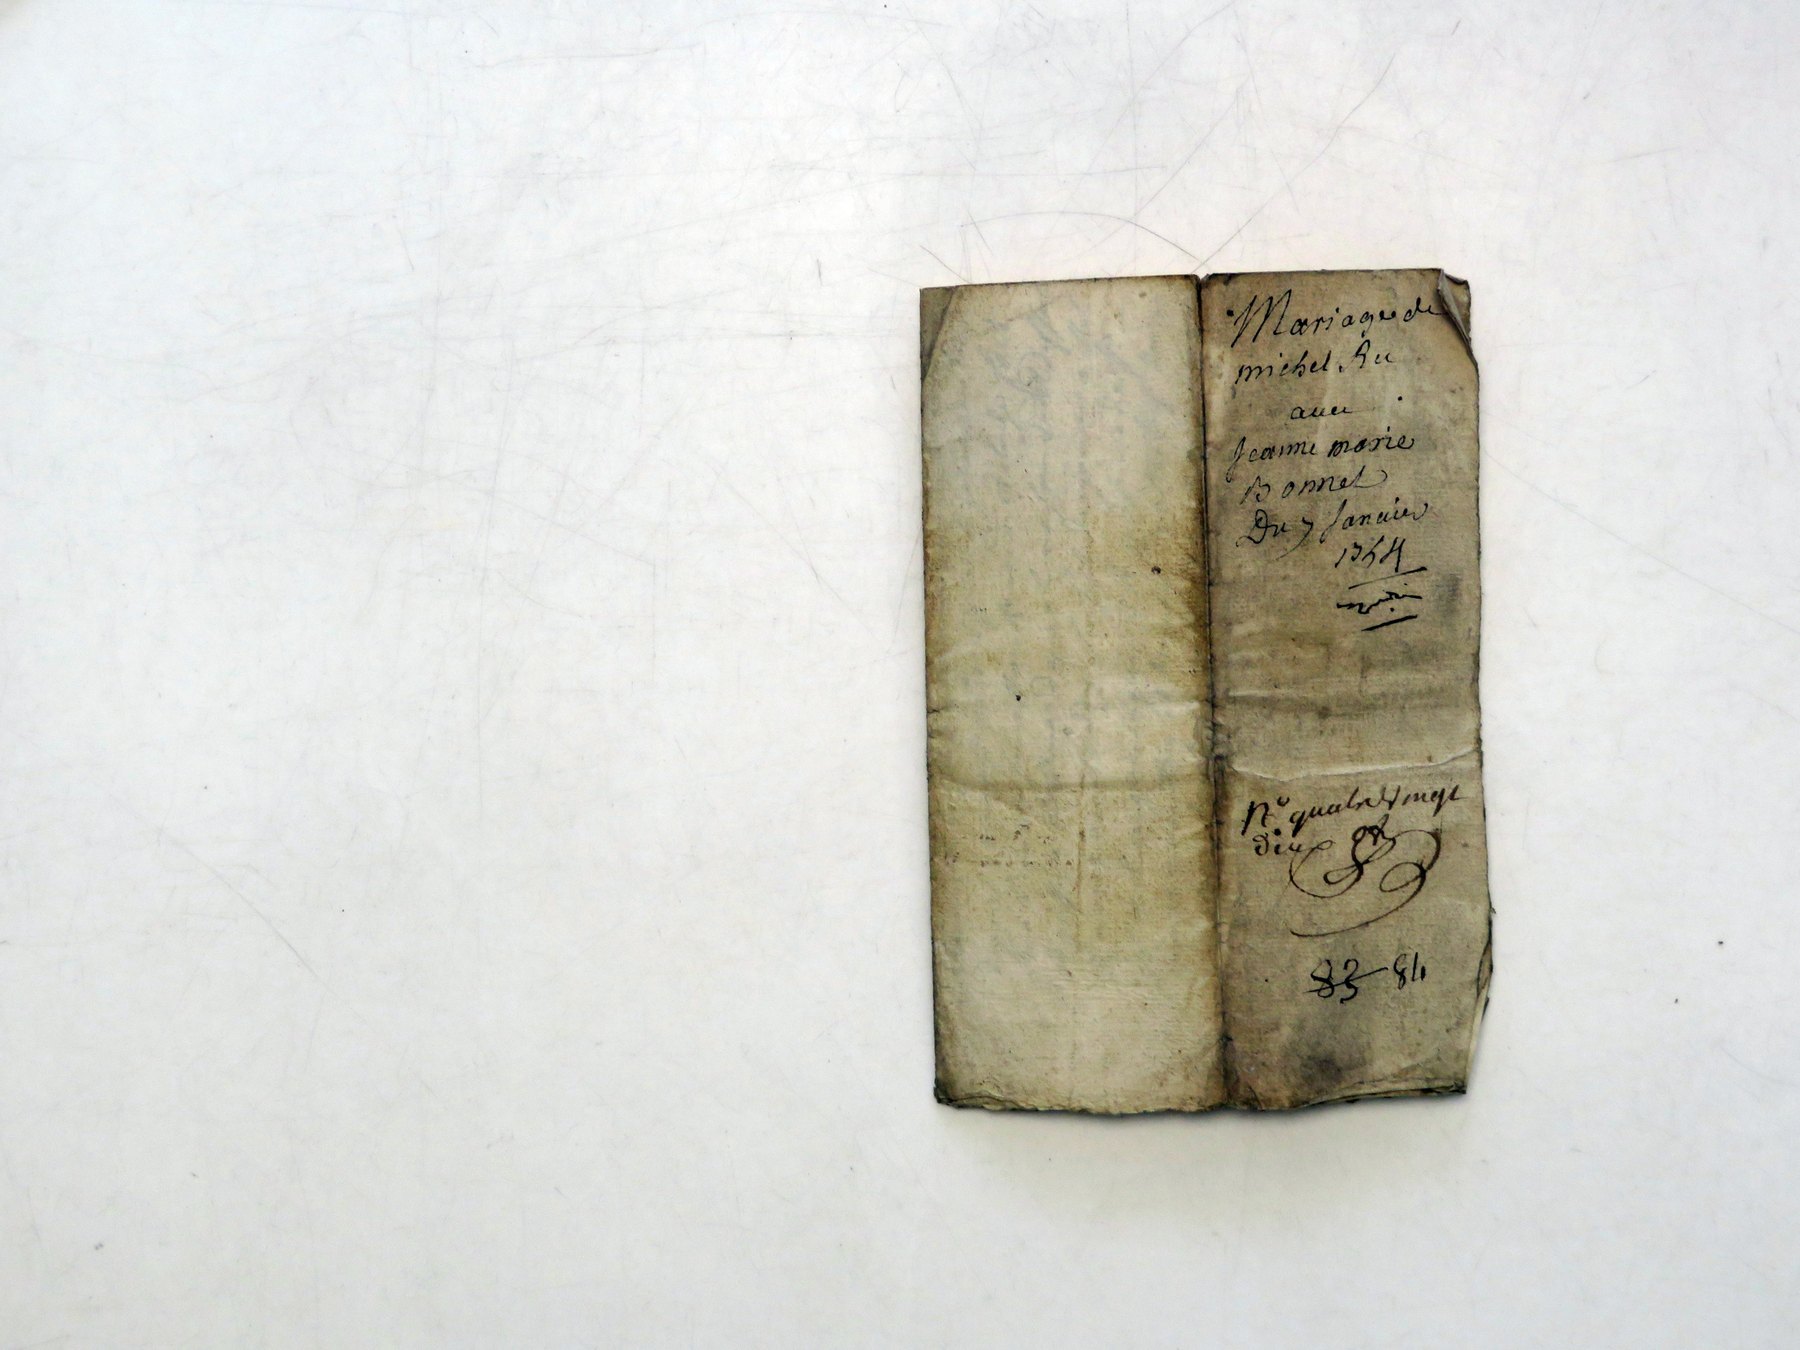 Mariage de
michel Ru
auec
Jeanne marie
Bonnet
Du 7 Januier
1754
N° quatre Vingt
dix
83 84